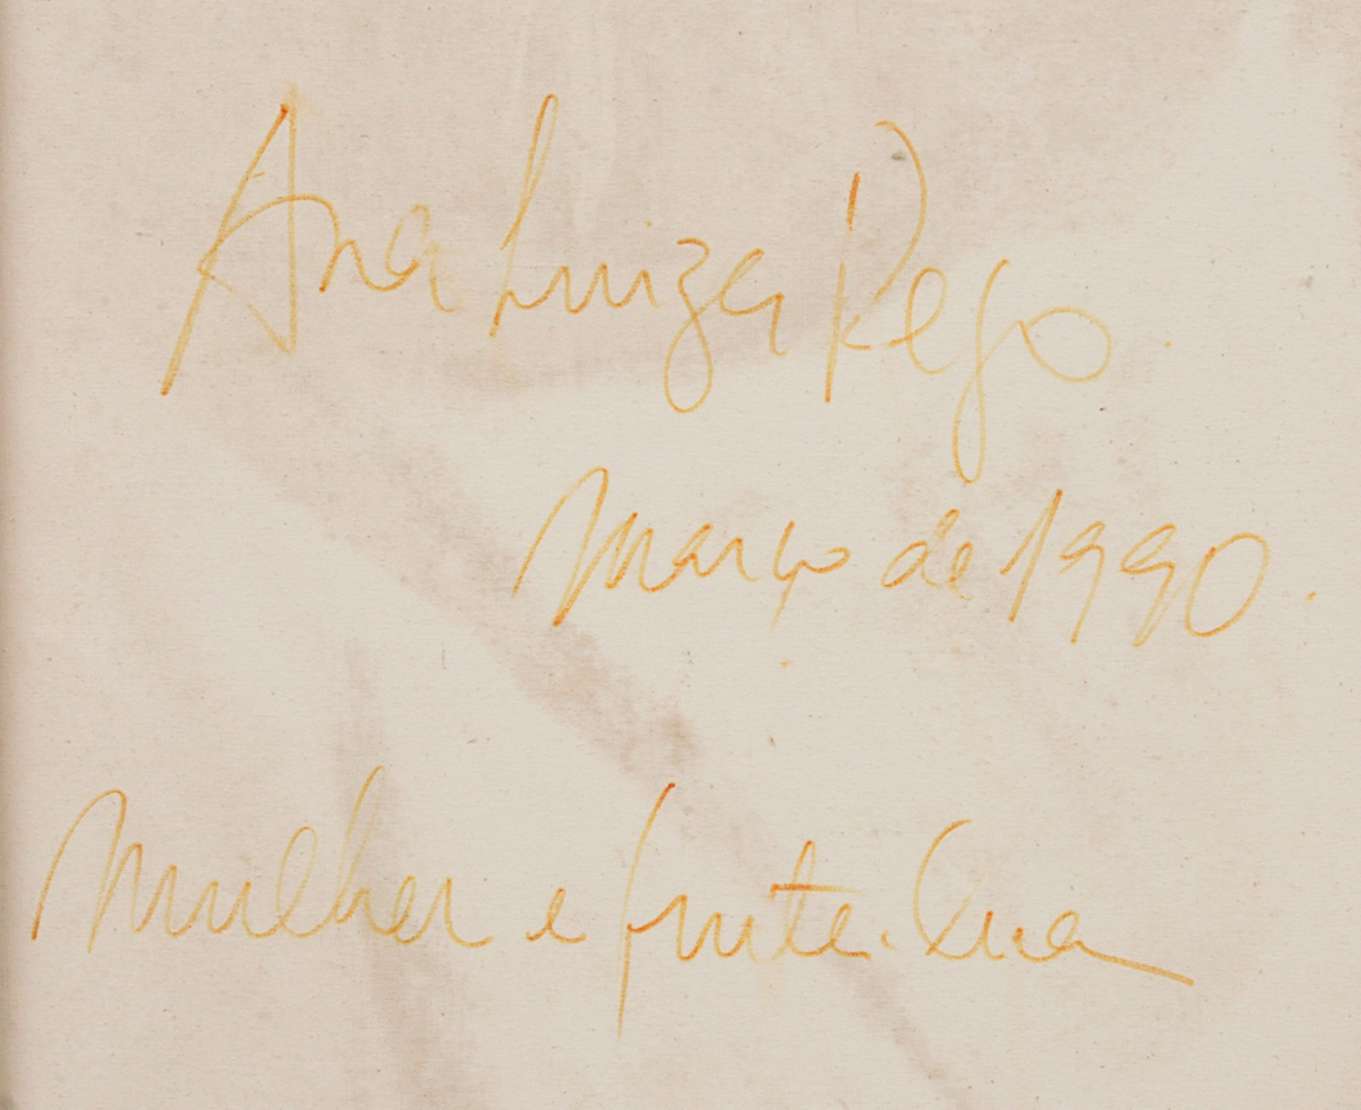 Ana Luiza Rego.
Março de 1990.
Mulher e fruteira